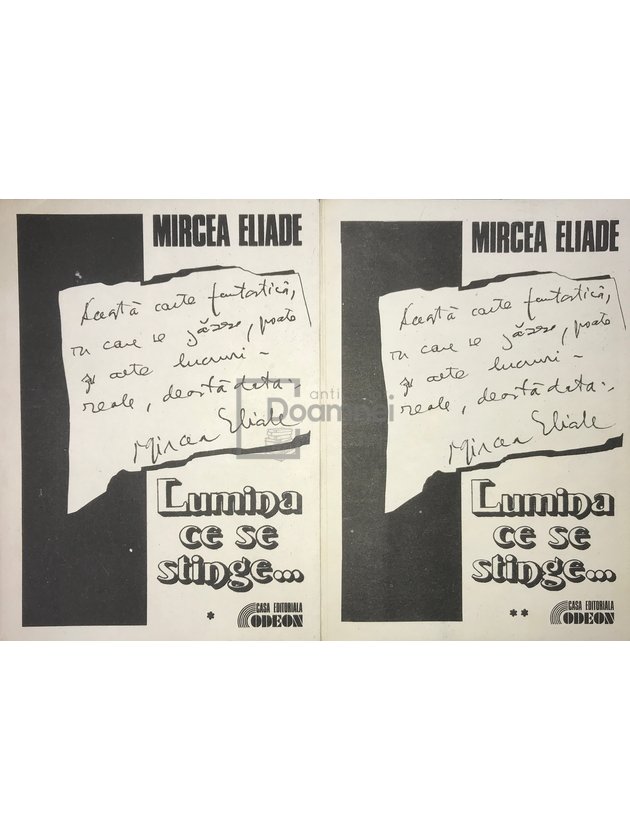 MIRCEA ELIADE
Această carte fantastică,
în care se , poate
și alte lucruri -
reale, deastădata.
Mircea Eliade
Lumina
ce se
stinge...
*
CASA EDITORIALA
ODEON
MIRCEA ELIADE
Această carte fantastică,
în care se , poate
și alte lucruri -
reale, deastădata.
Mircea Eliade
Lumina
ce se
stinge...
**
CASA EDITORIALA
ODEON